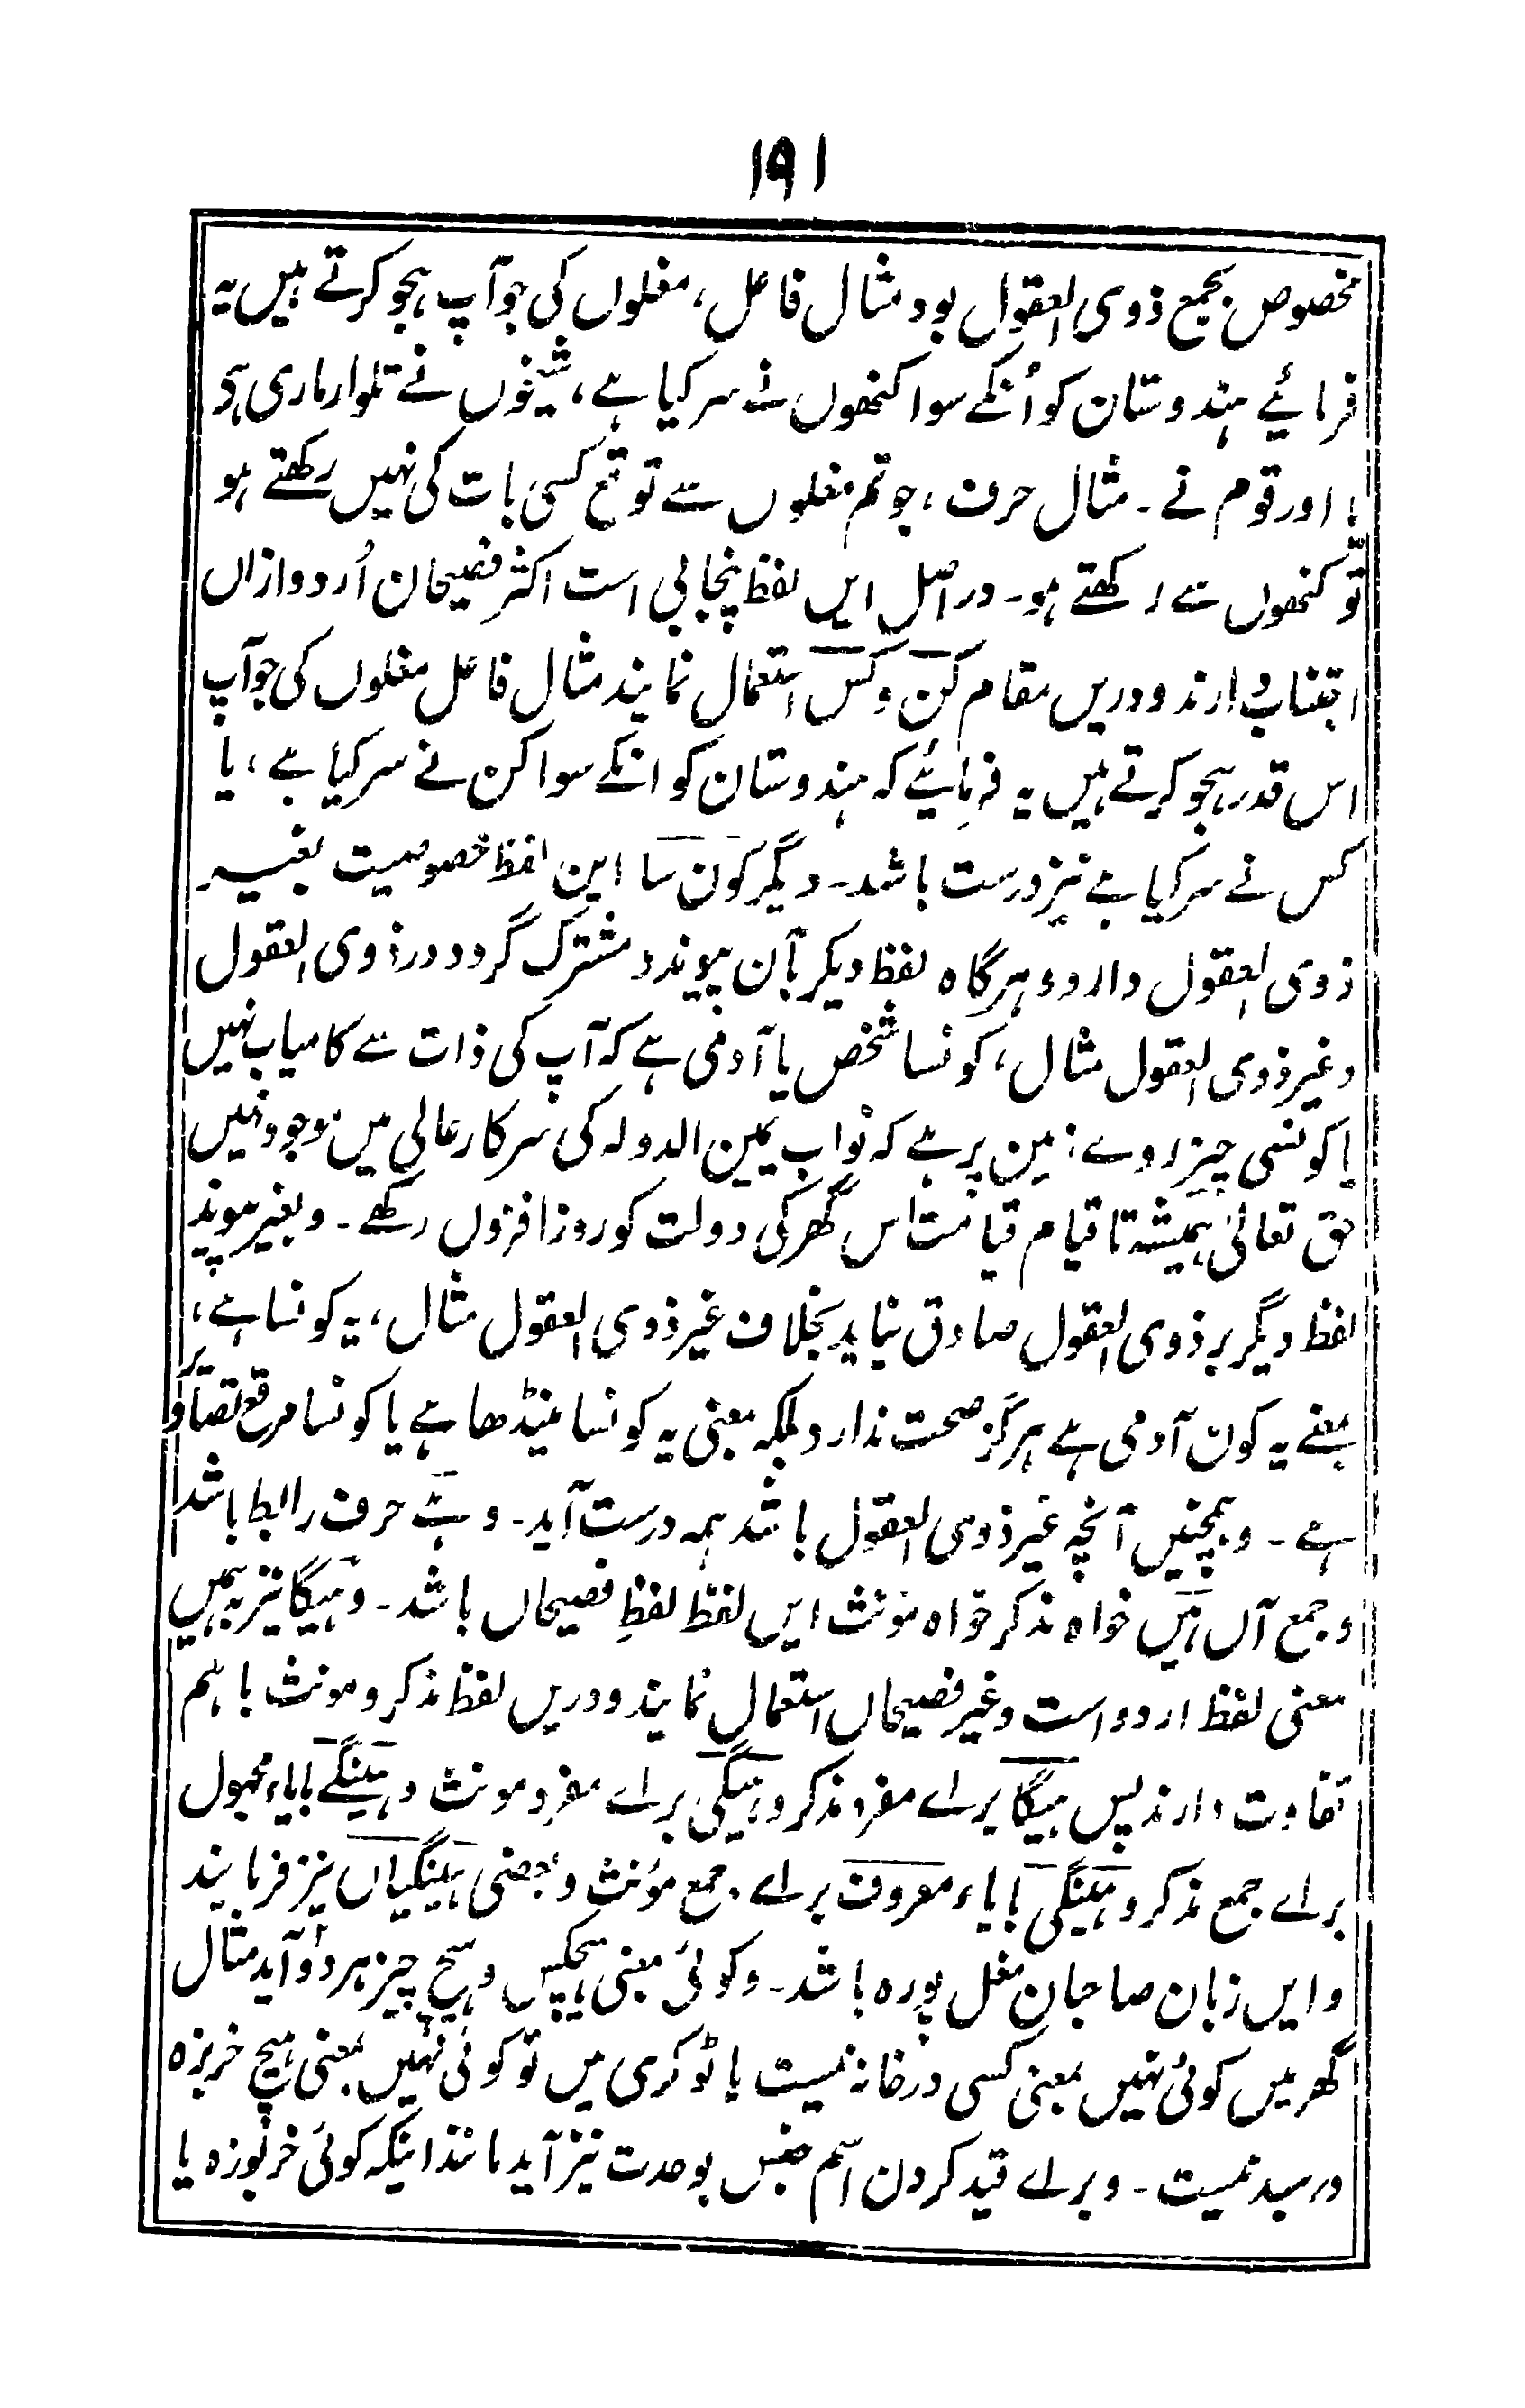 ۱۹۱
مخصوص بجمع ذوی العقول بود مثال فاعل، مغلوں کی جو آپ ہجو کرتے ہیں یہ
فرمائیے ہندوستان کو اُنکے سوا کنھوں نے سر کیا ہے، شیخوں نے تلوار ماری ہی
یا اور قوم نے۔ مثال حرف، جو تم مغلوں سے توقع کسی بات کی نہیں رکھتے ہو
تو کنھوں سے رکھتے ہو۔ در اصل ایں لفظ پنجابی است اکثر فصیحان اُردو ازاں
اجتناب دارند و دریں مقام کن و کس استعمال نمایند مثال فاعل مغلوں کی جو آپ
اس قدر ہجو کرتے ہیں یہ فرمائیے کہ ہندوستان کو انکے سوا کن نے سر کیا ہے، یا
کس نے سر کیا ہے نیز درست باشد۔ دیگر کون سا این لفظ خصوصیت بغیر
ذوی العقول دارد و ہرگاہ لفظ دیگر بآن پیوندد مشترک گردد در ذوی العقول
و غیر ذوی العقول مثال، کونسا شخص یا آدمی ہے کہ آپ کی ذات سے کامیاب نہیں
یا کونسی چیز روے زمین پر ہے کہ نواب یمین الدولہ کی سرکار عالی میں موجود نہیں
حق تعالیٰ ہمیشہ تا قیام قیامت اس گھر کی دولت کو روز افزوں رکھے۔ و بغیر پیوند
لفظ دیگر بر ذوی العقول صادق نیاید بخلاف غیر ذوی العقول مثال، یہ کونسا ہے،
بمعنے یہ کون آدمی ہے ہرگز صحت ندارد بلکہ بمعنی یہ کونسا مینڈھا ہے یا کونسا مرقع تصاویر
ہے۔ و ہمچنیں آنچہ غیر ذوی العقول باشد ہمہ درست آید۔ و ہے حرف رابط باشد
و جمع آں ہیں خواہ مذکر خواہ مونث ایں لفظ لفظِ فصیحاں باشد۔ و ہیگا نیز بہمیں
معنی لفظ اردو است و غیر فصیحاں استعمال نمایند و دریں لفظ مذکر و مونث باہم
تفاوت دارند پس ہیگا برائے مفرد مذکر و ہیگی برائے مفرد مونث و ہینگے بایاء مجہول
برائے جمع مذکر و ہینگی بایاء معروف برائے جمع مؤنث و بعضی ہینگیاں نیز فرمایند
و ایں زبان صاحبان مغل پورہ باشد۔ و کوئی بمعنی ہیچکس و ہیچ چیز ہر دو آید مثال
گھر میں کوئی نہیں بمعنی کسی در خانہ نیست یا ٹوکری میں تو کوئی نہیں بمعنی ہیچ خربزہ
در سبد نیست۔ و برائے قید کردن اسم جنس بوحدت نیز آید مانند اینکہ کوئی خربوزہ یا